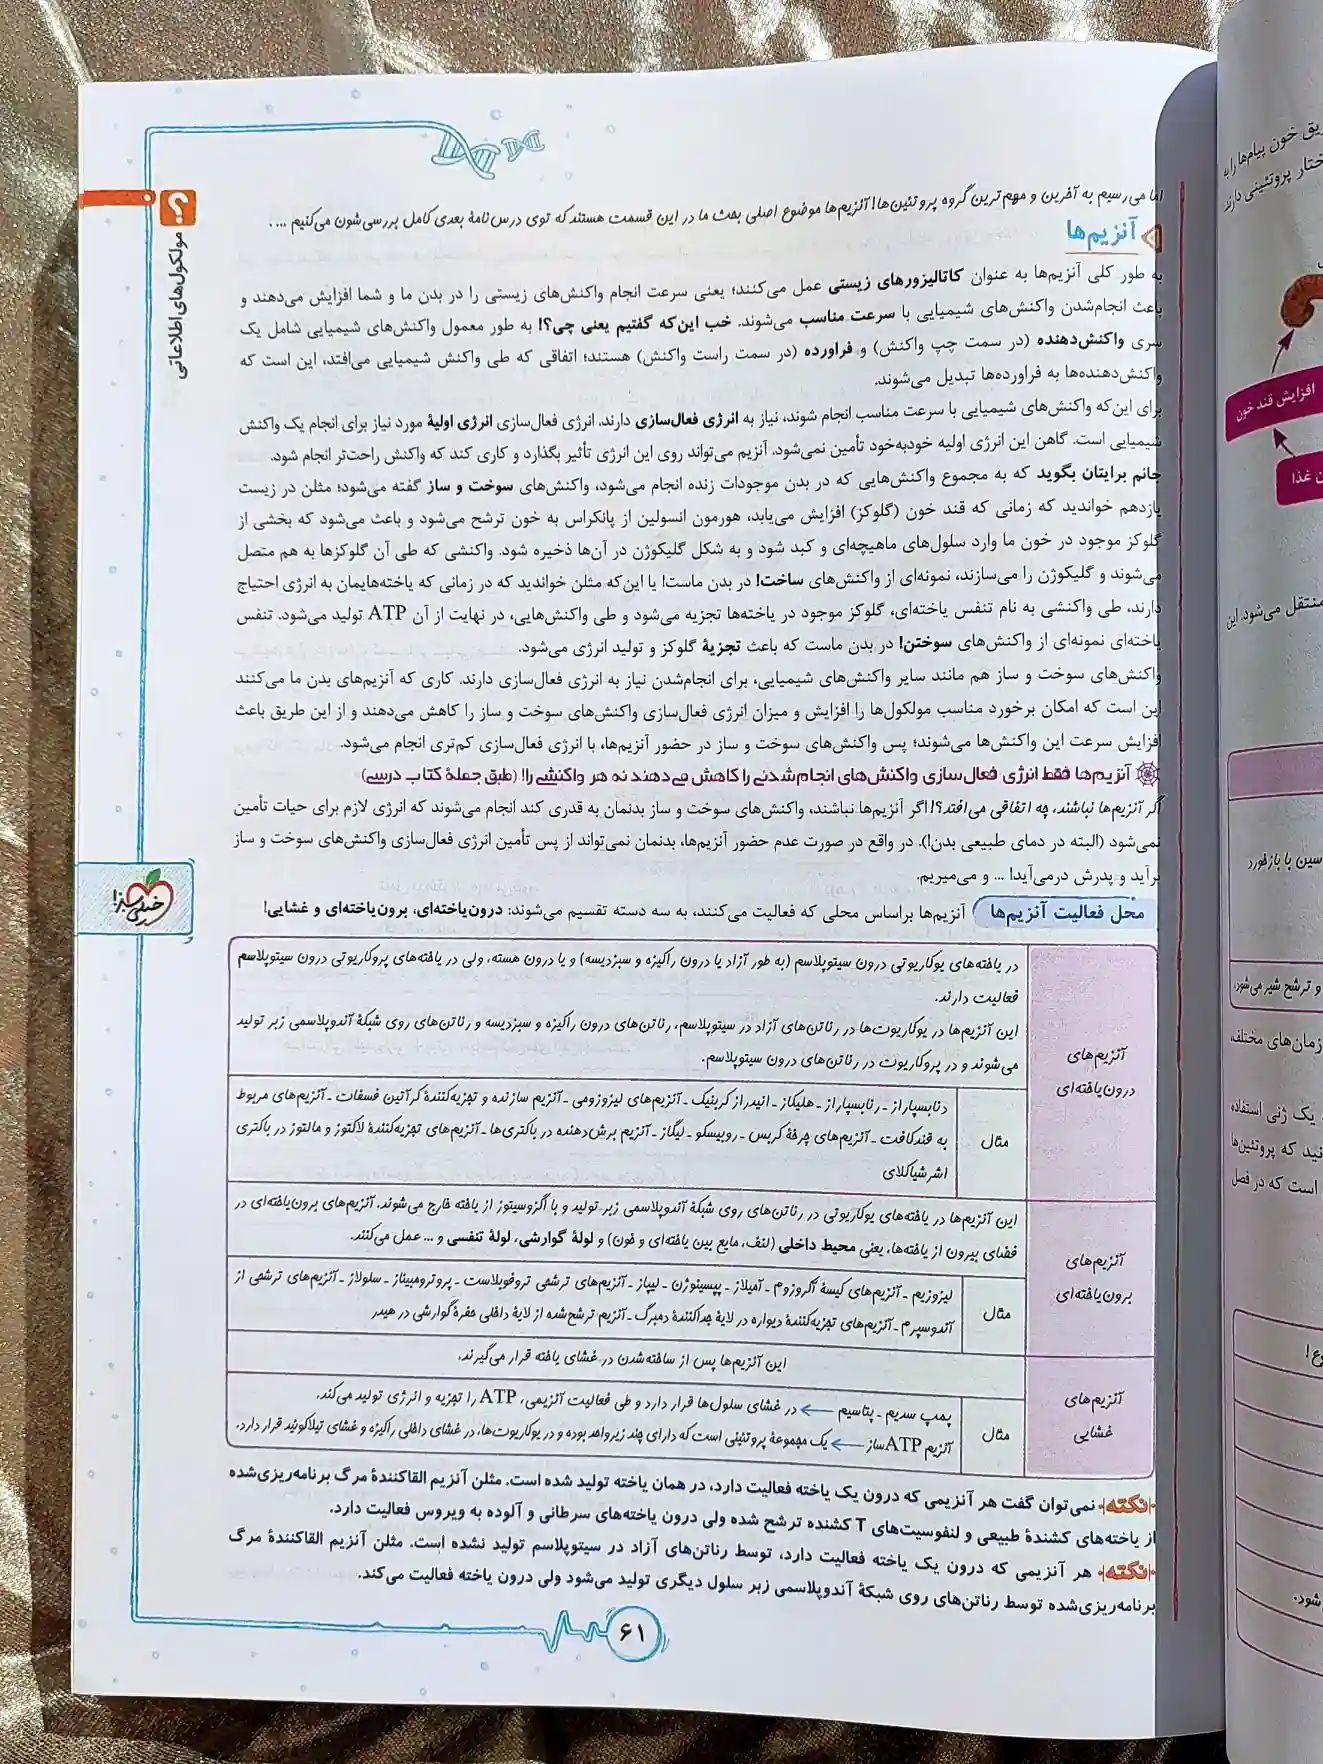 اما می‌رسیم به آخرین و مهم‌ترین گروه پروتئین‌ها! آنزیم‌ها موضوع اصلی بحث ما در این قسمت هستند که توی درس‌نامهٔ بعدی کامل بررسی‌شون می‌کنیم ...
آنزیم‌ها
به طور کلی آنزیم‌ها به عنوان کاتالیزورهای زیستی عمل می‌کنند؛ یعنی سرعت انجام واکنش‌های زیستی را در بدن ما و شما افزایش می‌دهند و
باعث انجام‌شدن واکنش‌های شیمیایی با سرعت مناسب می‌شوند. خب این‌که گفتیم یعنی چی؟! به طور معمول واکنش‌های شیمیایی شامل یک
سری واکنش‌دهنده (در سمت چپ واکنش) و فراورده (در سمت راست واکنش) هستند؛ اتفاقی که طی واکنش شیمیایی می‌افتد، این است که
واکنش‌دهنده‌ها به فراورده‌ها تبدیل می‌شوند.
برای این‌که واکنش‌های شیمیایی با سرعت مناسب انجام شوند، نیاز به انرژی فعال‌سازی دارند. انرژی فعال‌سازی انرژی اولیهٔ مورد نیاز برای انجام یک واکنش
شیمیایی است. گاهن این انرژی اولیه خودبه‌خود تأمین نمی‌شود. آنزیم می‌تواند روی این انرژی تأثیر بگذارد و کاری کند که واکنش راحت‌تر انجام شود.
جانم برایتان بگوید که به مجموع واکنش‌هایی که در بدن موجودات زنده انجام می‌شود، واکنش‌های سوخت و ساز گفته می‌شود؛ مثلن در زیست
یازدهم خواندید که زمانی که قند خون (گلوکز) افزایش می‌یابد، هورمون انسولین از پانکراس به خون ترشح می‌شود و باعث می‌شود که بخشی از
گلوکز موجود در خون ما وارد سلول‌های ماهیچه‌ای و کبد شود و به شکل گلیکوژن در آن‌ها ذخیره شود. واکنشی که طی آن گلوکزها به هم متصل
می‌شوند و گلیکوژن را می‌سازند، نمونه‌ای از واکنش‌های ساخت! در بدن ماست! یا این‌که مثلن خواندید که در زمانی که یاخته‌هایمان به انرژی احتیاج
دارند، طی واکنشی به نام تنفس یاخته‌ای، گلوکز موجود در یاخته‌ها تجزیه می‌شود و طی واکنش‌هایی، در نهایت از آن ATP تولید می‌شود. تنفس
یاخته‌ای نمونه‌ای از واکنش‌های سوختن! در بدن ماست که باعث تجزیهٔ گلوکز و تولید انرژی می‌شود.
واکنش‌های سوخت و ساز هم مانند سایر واکنش‌های شیمیایی، برای انجام‌شدن نیاز به انرژی فعال‌سازی دارند. کاری که آنزیم‌های بدن ما می‌کنند
این است که امکان برخورد مناسب مولکول‌ها را افزایش و میزان انرژی فعال‌سازی واکنش‌های سوخت و ساز را کاهش می‌دهند و از این طریق باعث
افزایش سرعت این واکنش‌ها می‌شوند؛ پس واکنش‌های سوخت و ساز در حضور آنزیم‌ها، با انرژی فعال‌سازی کم‌تری انجام می‌شود.
آنزیم‌ها فقط انرژی فعال‌سازی واکنش‌های انجام‌شدنی را کاهش می‌دهند نه هر واکنشی را! (طبق جملهٔ کتاب درسی)
اگر آنزیم‌ها نباشند، چه اتفاقی می‌افتد؟! اگر آنزیم‌ها نباشند، واکنش‌های سوخت و ساز بدنمان به قدری کند انجام می‌شوند که انرژی لازم برای حیات تأمین
نمی‌شود (البته در دمای طبیعی بدن!). در واقع در صورت عدم حضور آنزیم‌ها، بدنمان نمی‌تواند از پس تأمین انرژی فعال‌سازی واکنش‌های سوخت و ساز
برآید و پدرش درمی‌آید! ... و می‌میریم.
محل فعالیت آنزیم‌ها آنزیم‌ها براساس محلی که فعالیت می‌کنند، به سه دسته تقسیم می‌شوند: درون‌یاخته‌ای، برون‌یاخته‌ای و غشایی!
آنزیم‌های
درون‌یاخته‌ای
در یاخته‌های یوکاریوتی درون سیتوپلاسم (به طور آزاد یا درون راکیزه و سبزدیسه) و یا درون هسته، ولی در یاخته‌های پروکاریوتی درون سیتوپلاسم
فعالیت دارند.
این آنزیم‌ها در یوکاریوت‌ها در رناتن‌های آزاد در سیتوپلاسم، رناتن‌های درون راکیزه و سبزدیسه و رناتن‌های روی شبکهٔ آندوپلاسمی زبر تولید
می‌شوند و در پروکاریوت در رناتن‌های درون سیتوپلاسم.
مثال
دنابسپاراز ـ رنابسپاراز ـ هلیکاز ـ انیدراز کربنیک ـ آنزیم‌های لیزوزومی ـ آنزیم سازنده و تجزیه‌کنندهٔ کرآتین فسفات ـ آنزیم‌های مربوط
به قندکافت ـ آنزیم‌های چرخهٔ کربس ـ روبیسکو ـ لیگاز ـ آنزیم برش‌دهنده در باکتری‌ها ـ آنزیم‌های تجزیه‌کنندهٔ لاکتوز و مالتوز در باکتری
اشرشیاکلای
آنزیم‌های
برون‌یاخته‌ای
این آنزیم‌ها در یاخته‌های یوکاریوتی در رناتن‌های روی شبکهٔ آندوپلاسمی زبر تولید و با اگزوسیتوز از یاخته خارج می‌شوند. آنزیم‌های برون‌یاخته‌ای در
فضای بیرون از یاخته‌ها، یعنی محیط داخلی (لنف، مایع بین یاخته‌ای و خون) و لولهٔ گوارشی، لولهٔ تنفسی و ... عمل می‌کنند.
مثال
لیزوزیم ـ آنزیم‌های کیسهٔ آکروزوم ـ آمیلاز ـ پپسینوژن ـ لیپاز ـ آنزیم‌های ترشحی تروفوبلاست ـ پروترومبیناز ـ سلولاز ـ آنزیم‌های ترشحی از
آندوسپرم ـ آنزیم‌های تجزیه‌کنندهٔ دیواره در لایهٔ جداکنندهٔ دمبرگ ـ آنزیم ترشح‌شده از لایهٔ داخلی حفرهٔ گوارشی در هیدر
آنزیم‌های
غشایی
این آنزیم‌ها پس از ساخته‌شدن در غشای یاخته قرار می‌گیرند.
مثال
پمپ سدیم ـ پتاسیم ← در غشای سلول‌ها قرار دارد و طی فعالیت آنزیمی، ATP را تجزیه و انرژی تولید می‌کند.
آنزیم ATP ساز ← یک مجموعهٔ پروتئینی است که دارای چند زیرواحد بوده و در یوکاریوت‌ها، در غشای داخلی راکیزه و غشای تیلاکوئید قرار دارد.
نکته نمی‌توان گفت هر آنزیمی که درون یک یاخته فعالیت دارد، در همان یاخته تولید شده است. مثلن آنزیم القاکنندهٔ مرگ برنامه‌ریزی‌شده
از یاخته‌های کشندهٔ طبیعی و لنفوسیت‌های T کشنده ترشح شده ولی درون یاخته‌های سرطانی و آلوده به ویروس فعالیت دارد.
نکته هر آنزیمی که درون یک یاخته فعالیت دارد، توسط رناتن‌های آزاد در سیتوپلاسم تولید نشده است. مثلن آنزیم القاکنندهٔ مرگ
برنامه‌ریزی‌شده توسط رناتن‌های روی شبکهٔ آندوپلاسمی زبر سلول دیگری تولید می‌شود ولی درون یاخته فعالیت می‌کند.
۶۱
مولکول‌های اطلاعاتی
خیلی سبز!
افزایش قند خون
منتقل می‌شود. این
و ترشح شیر می‌شود.
زمان‌های مختلف،
یک ژنی استفاده
که پروتئین‌ها
است که در فصل